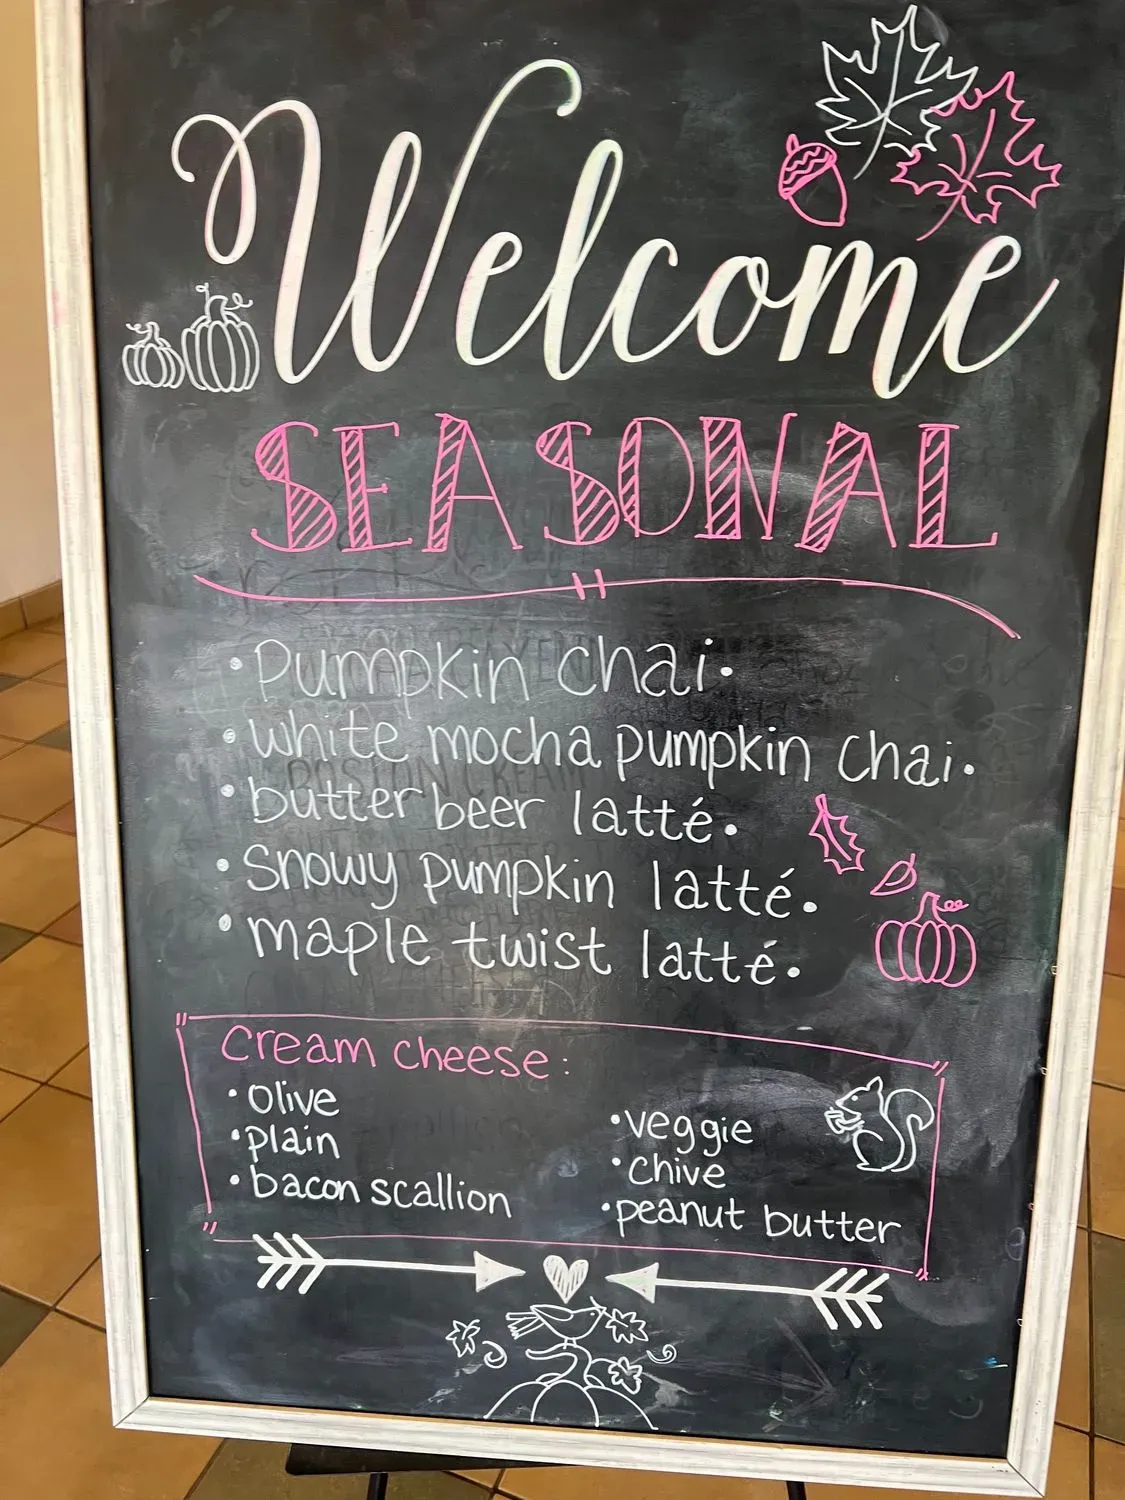 Welcome
SEASONAL
• Pumpkin chai.
• white mocha pumpkin chai.
• butter beer latté.
• Snowy pumpkin latté.
• maple twist latté.
Cream cheese:
• olive
• plain
• bacon scallion
• veggie
• chive
• peanut butter